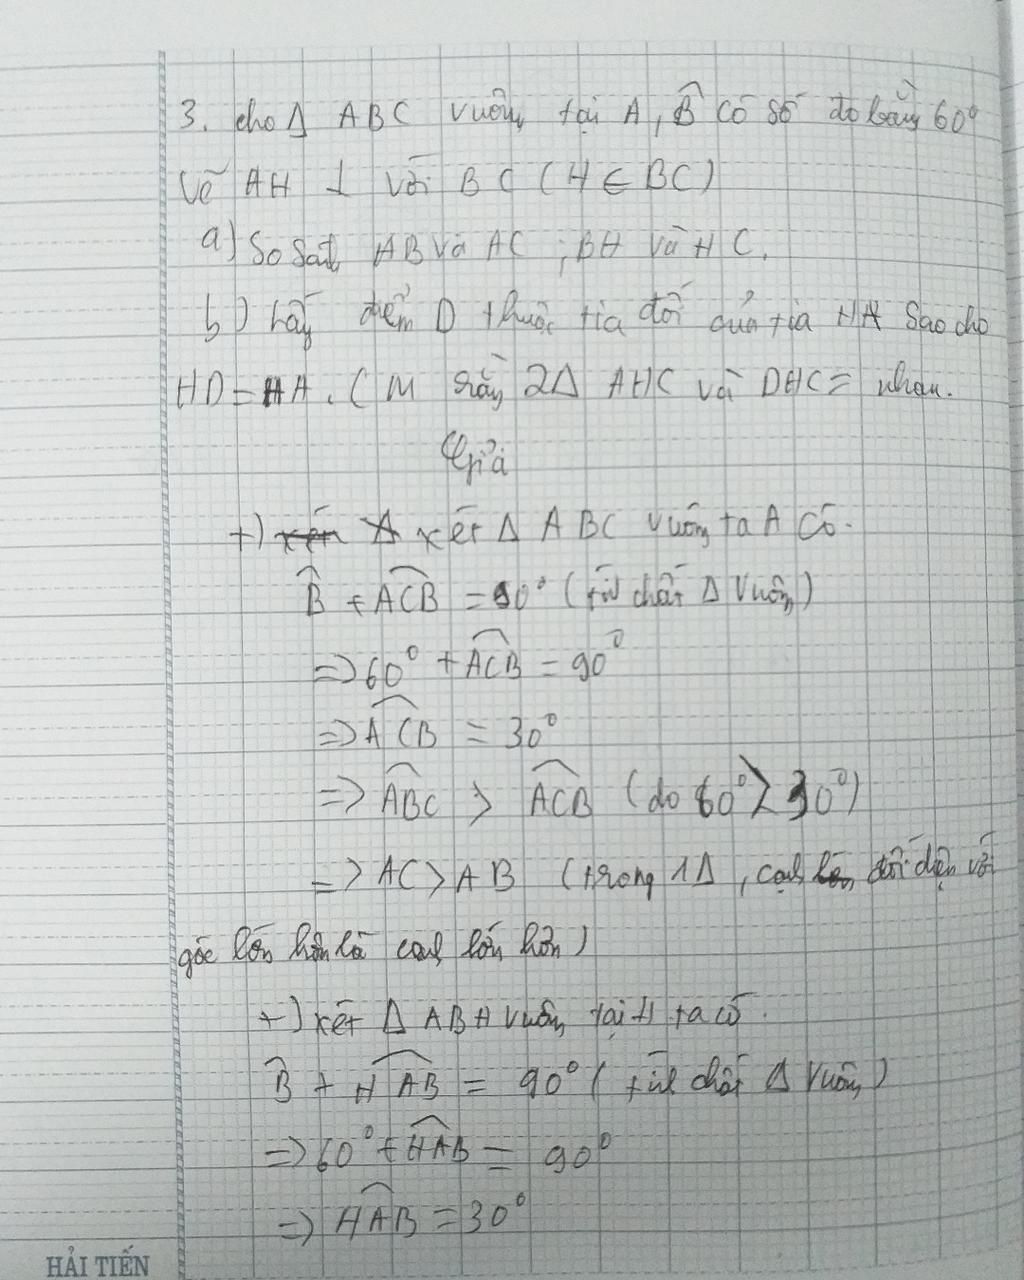 3. cho Δ ABC vuông tại A, B̂ có số đo bằng 60°
vẽ AH ⊥ với BC (H ∈ BC)
a) So sánh AB và AC ; BH và HC.
b) Lấy điểm D thuộc tia đối của tia HA sao cho
HD = HA. CM rằng 2Δ AHC và DHC = nhau.
Giải
+) xét Δ ABC vuông ta A có.
B̂ + ACB = 90° (tính chất Δ vuông)
=> 60° + ACB = 90°
=> ACB = 30°
=> ABC > ACB (do 60° > 30°)
=> AC > AB (trong 1Δ, cạnh đối diện với
góc lớn hơn là cạnh lớn hơn)
+) xét Δ ABH vuông tại H ta có.
B̂ + HAB = 90° (tính chất Δ vuông)
=> 60° + HAB = 90°
=> HAB = 30°
HẢI TIẾN